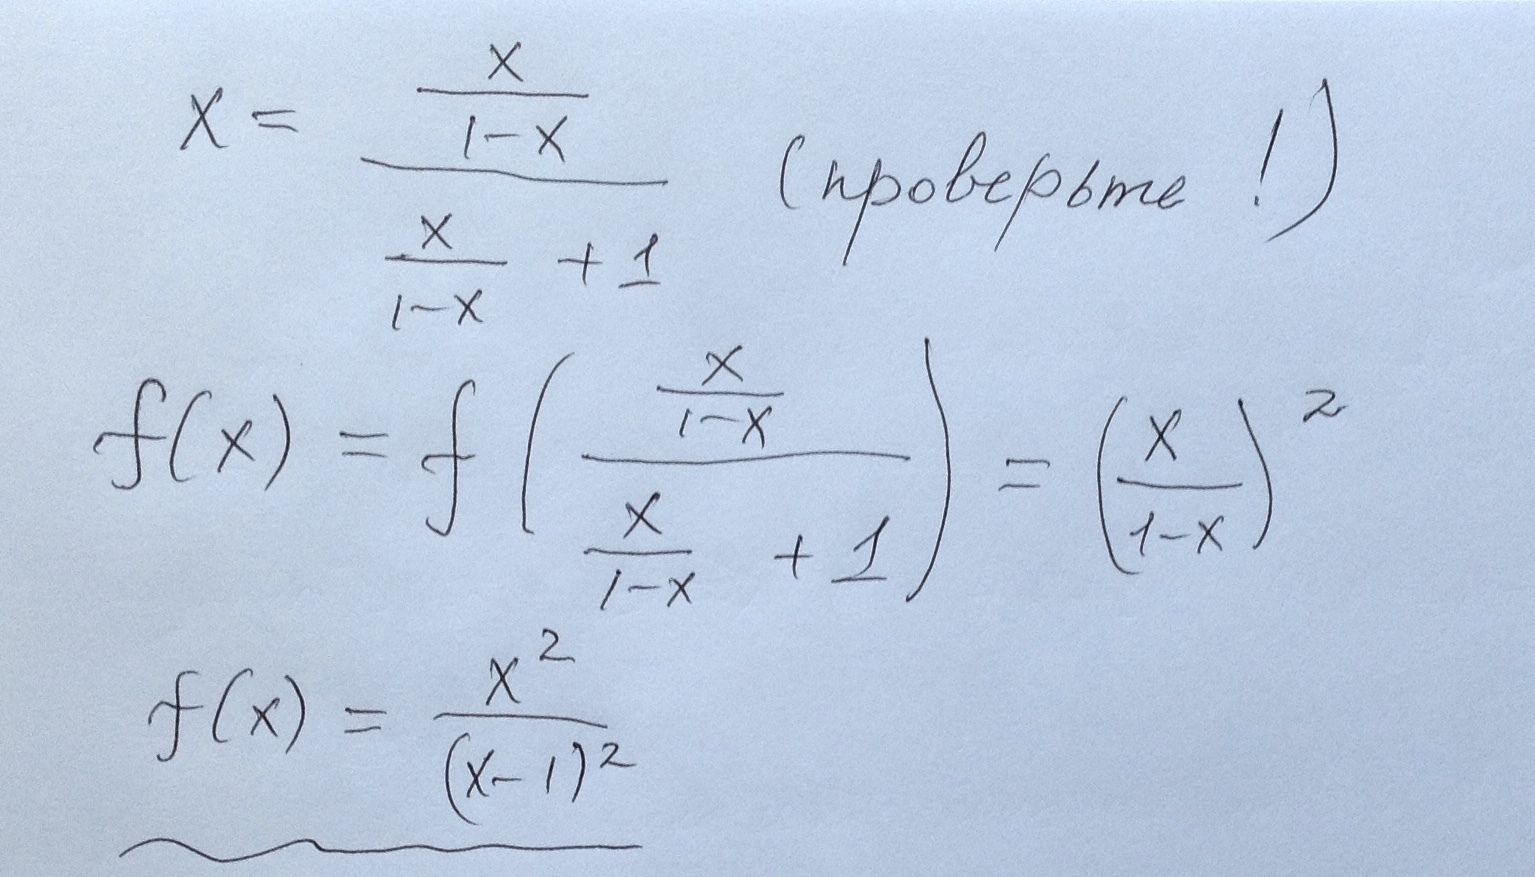 x = (x/(1-x))/(x/(1-x) + 1) (проверьте!)
f(x) = f((x/(1-x))/(x/(1-x) + 1)) = (x/(1-x))²
f(x) = x²/(x-1)²